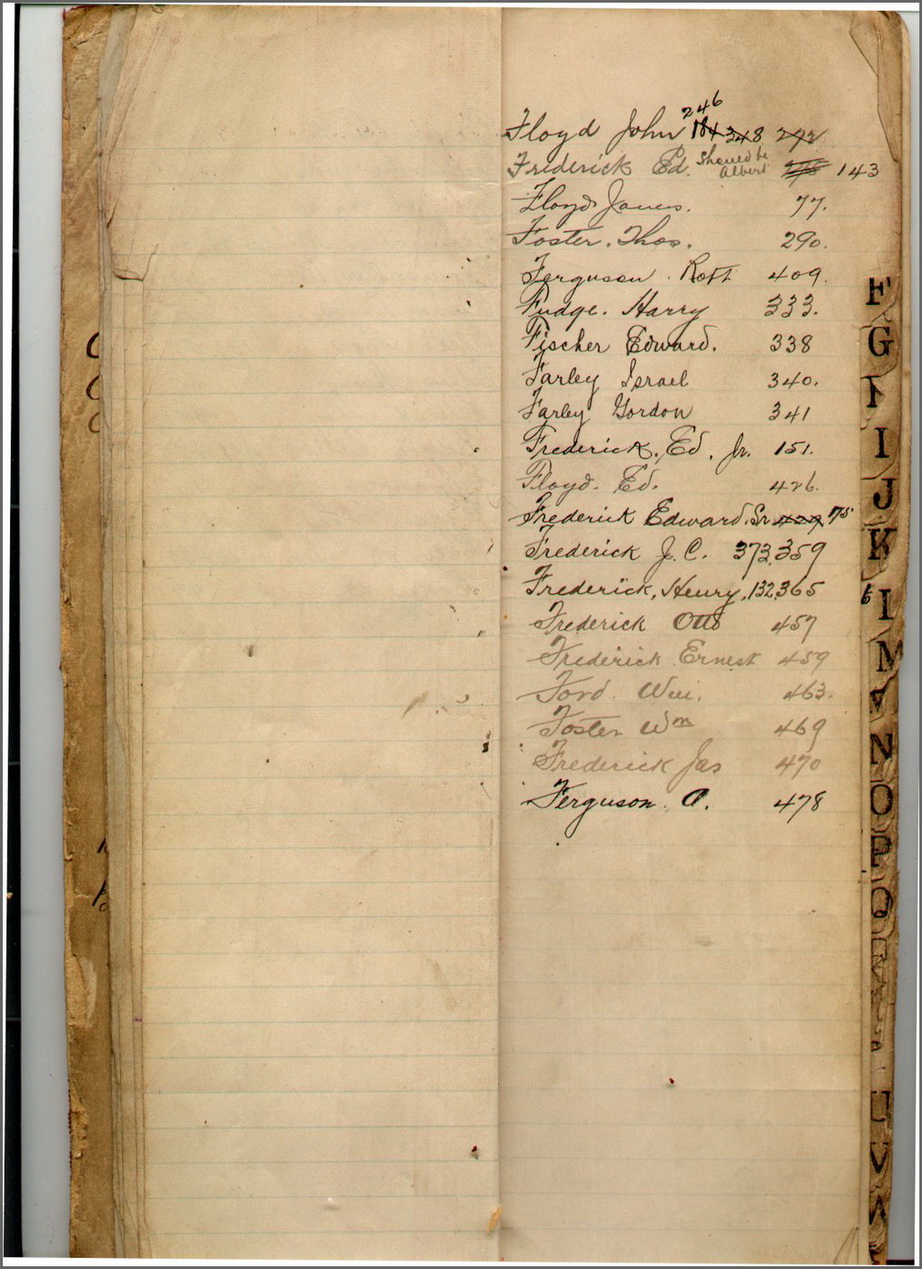 Floyd John 246 184 348 292
Frederick Ed. Should be Albert 143
Floyd James. 77.
Foster. Thos. 290.
Ferguson. Robt 409.
Fudge. Harry 333.
Fischer Edward. 338
Farley Israel 340.
Farley Gordon 341
Frederick. Ed. Jr. 151.
Floyd. Ed. 426.
Frederick Edward. Sr. 429 75
Frederick J. C. 373,359
Frederick, Henry, 132,365
Frederick Otto 457
Frederick Ernest 459
Ford. Wm. 463.
Foster Wm 469
Frederick Jas 470
Ferguson. A. 478
F
G
I
J
K
L
M
N
O
P
Q
U
V
W